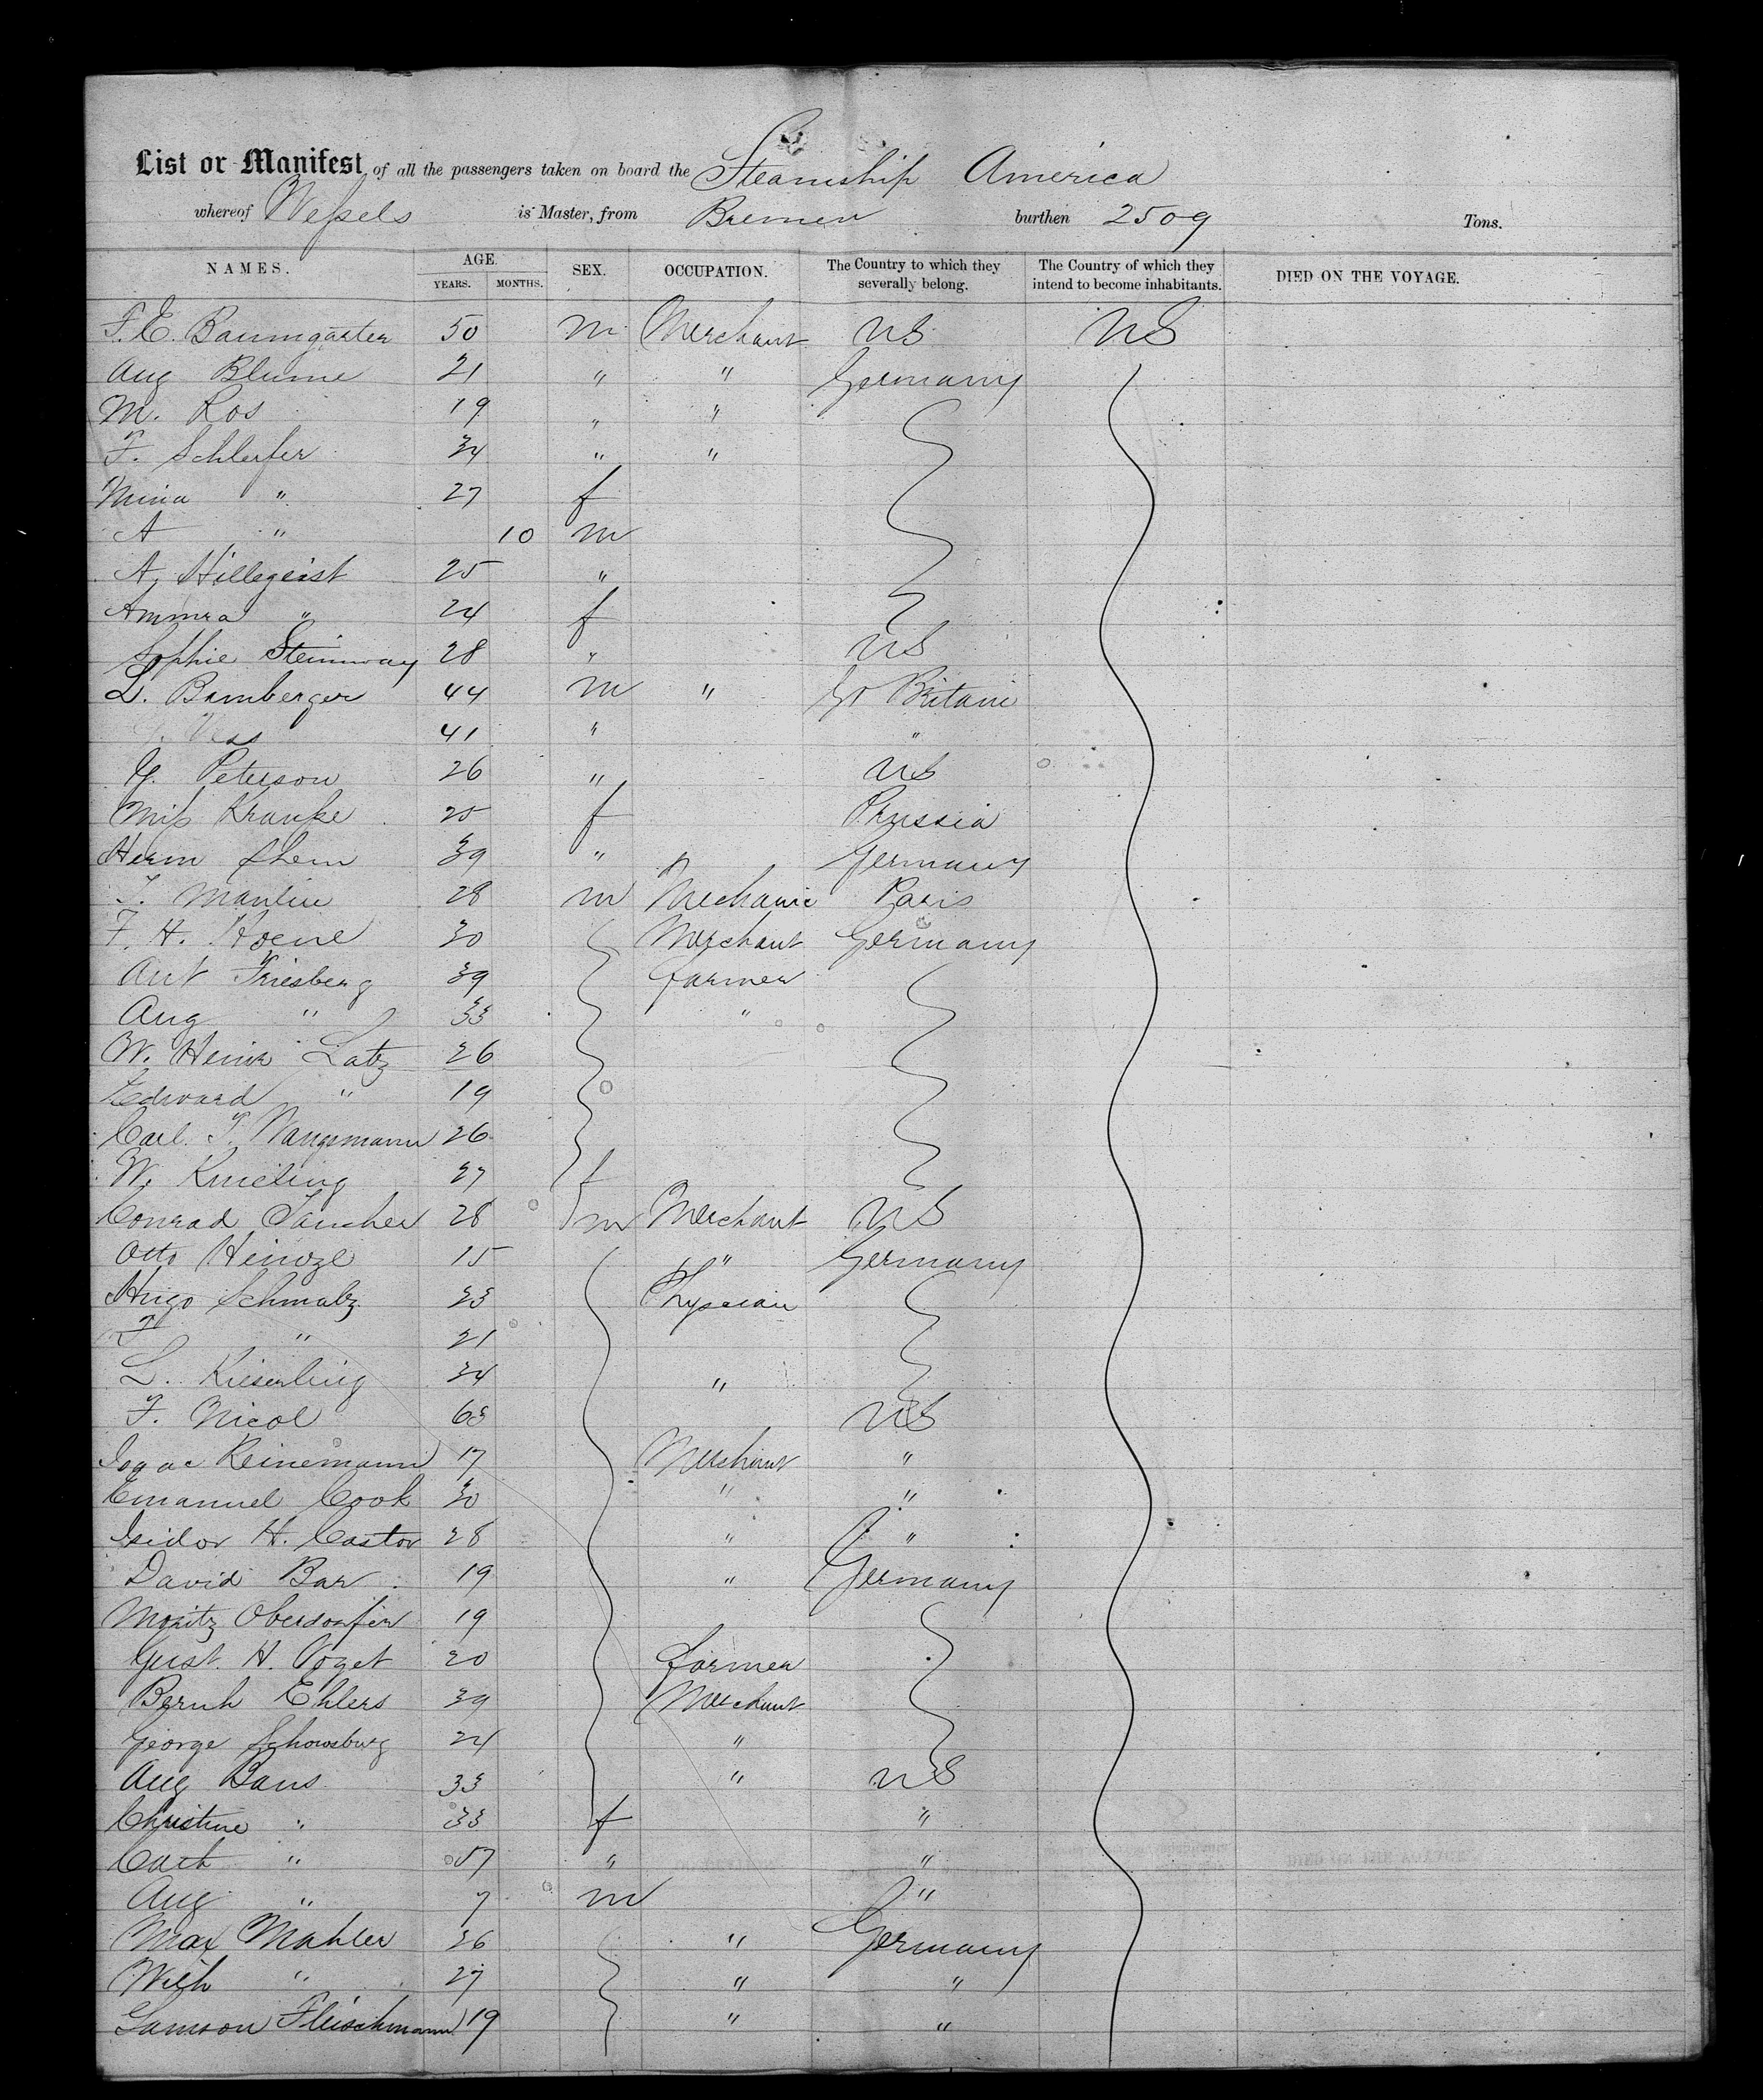 List or Manifest of all the passengers taken on board the Steamship America
whereof Wessels is Master, from Bremen burthen 2509 Tons.
NAMES. AGE. YEARS. MONTHS. SEX. OCCUPATION. The Country to which they severally belong. The Country of which they intend to become inhabitants. DIED ON THE VOYAGE.
F. E. Baumgarten 50 m Merchant US US
Aug Blume 21 " " Germany
M. Ros 19 " "
F. Schleifer 34 " "
Mina " 27 f
A " 10 m
A. Hillegeist 25 "
Ammra " 24 f
Sophie Steinway 28 " US
L. Bamberger 44 m " Gt Britain
41 " "
Peterson 26 " US
Miss Kranke 25 f Prussia
Herm 39 " " Germany
Manlin 28 m Mechanic Paris
F. H. Koene 30 Merchant Germany
Ant Friesberg 39 farmer
Aug " 33 "
W. Heinr Latz 26
Edward " 19
Carl F. Wangemann 26
W. Kmeling 27 f
Conrad 28 m Merchant US
Otto Heinzel 15 " Germany
Hugo Schmalz 23 Physician
F " 21
L. Kieserling 34 "
F. Nicol 63 US
Isaac Reinemann 17 Merchant "
Emanuel Cook 30 " "
Isidor H. Castor 28 " "
David Bar 19 " Germany
Moritz Obersdorfer 19
Gust. H. Voget 20 farmer
Bernh Ehlers 39 Merchant
George 24 "
Aug Bans 33 " US
Christine " 33 f "
Cath " 57 " "
Aug " 7 m "
Max Mahler 26 " Germany
Wilh " 27 " "
Samson Fleischmann 19 " "